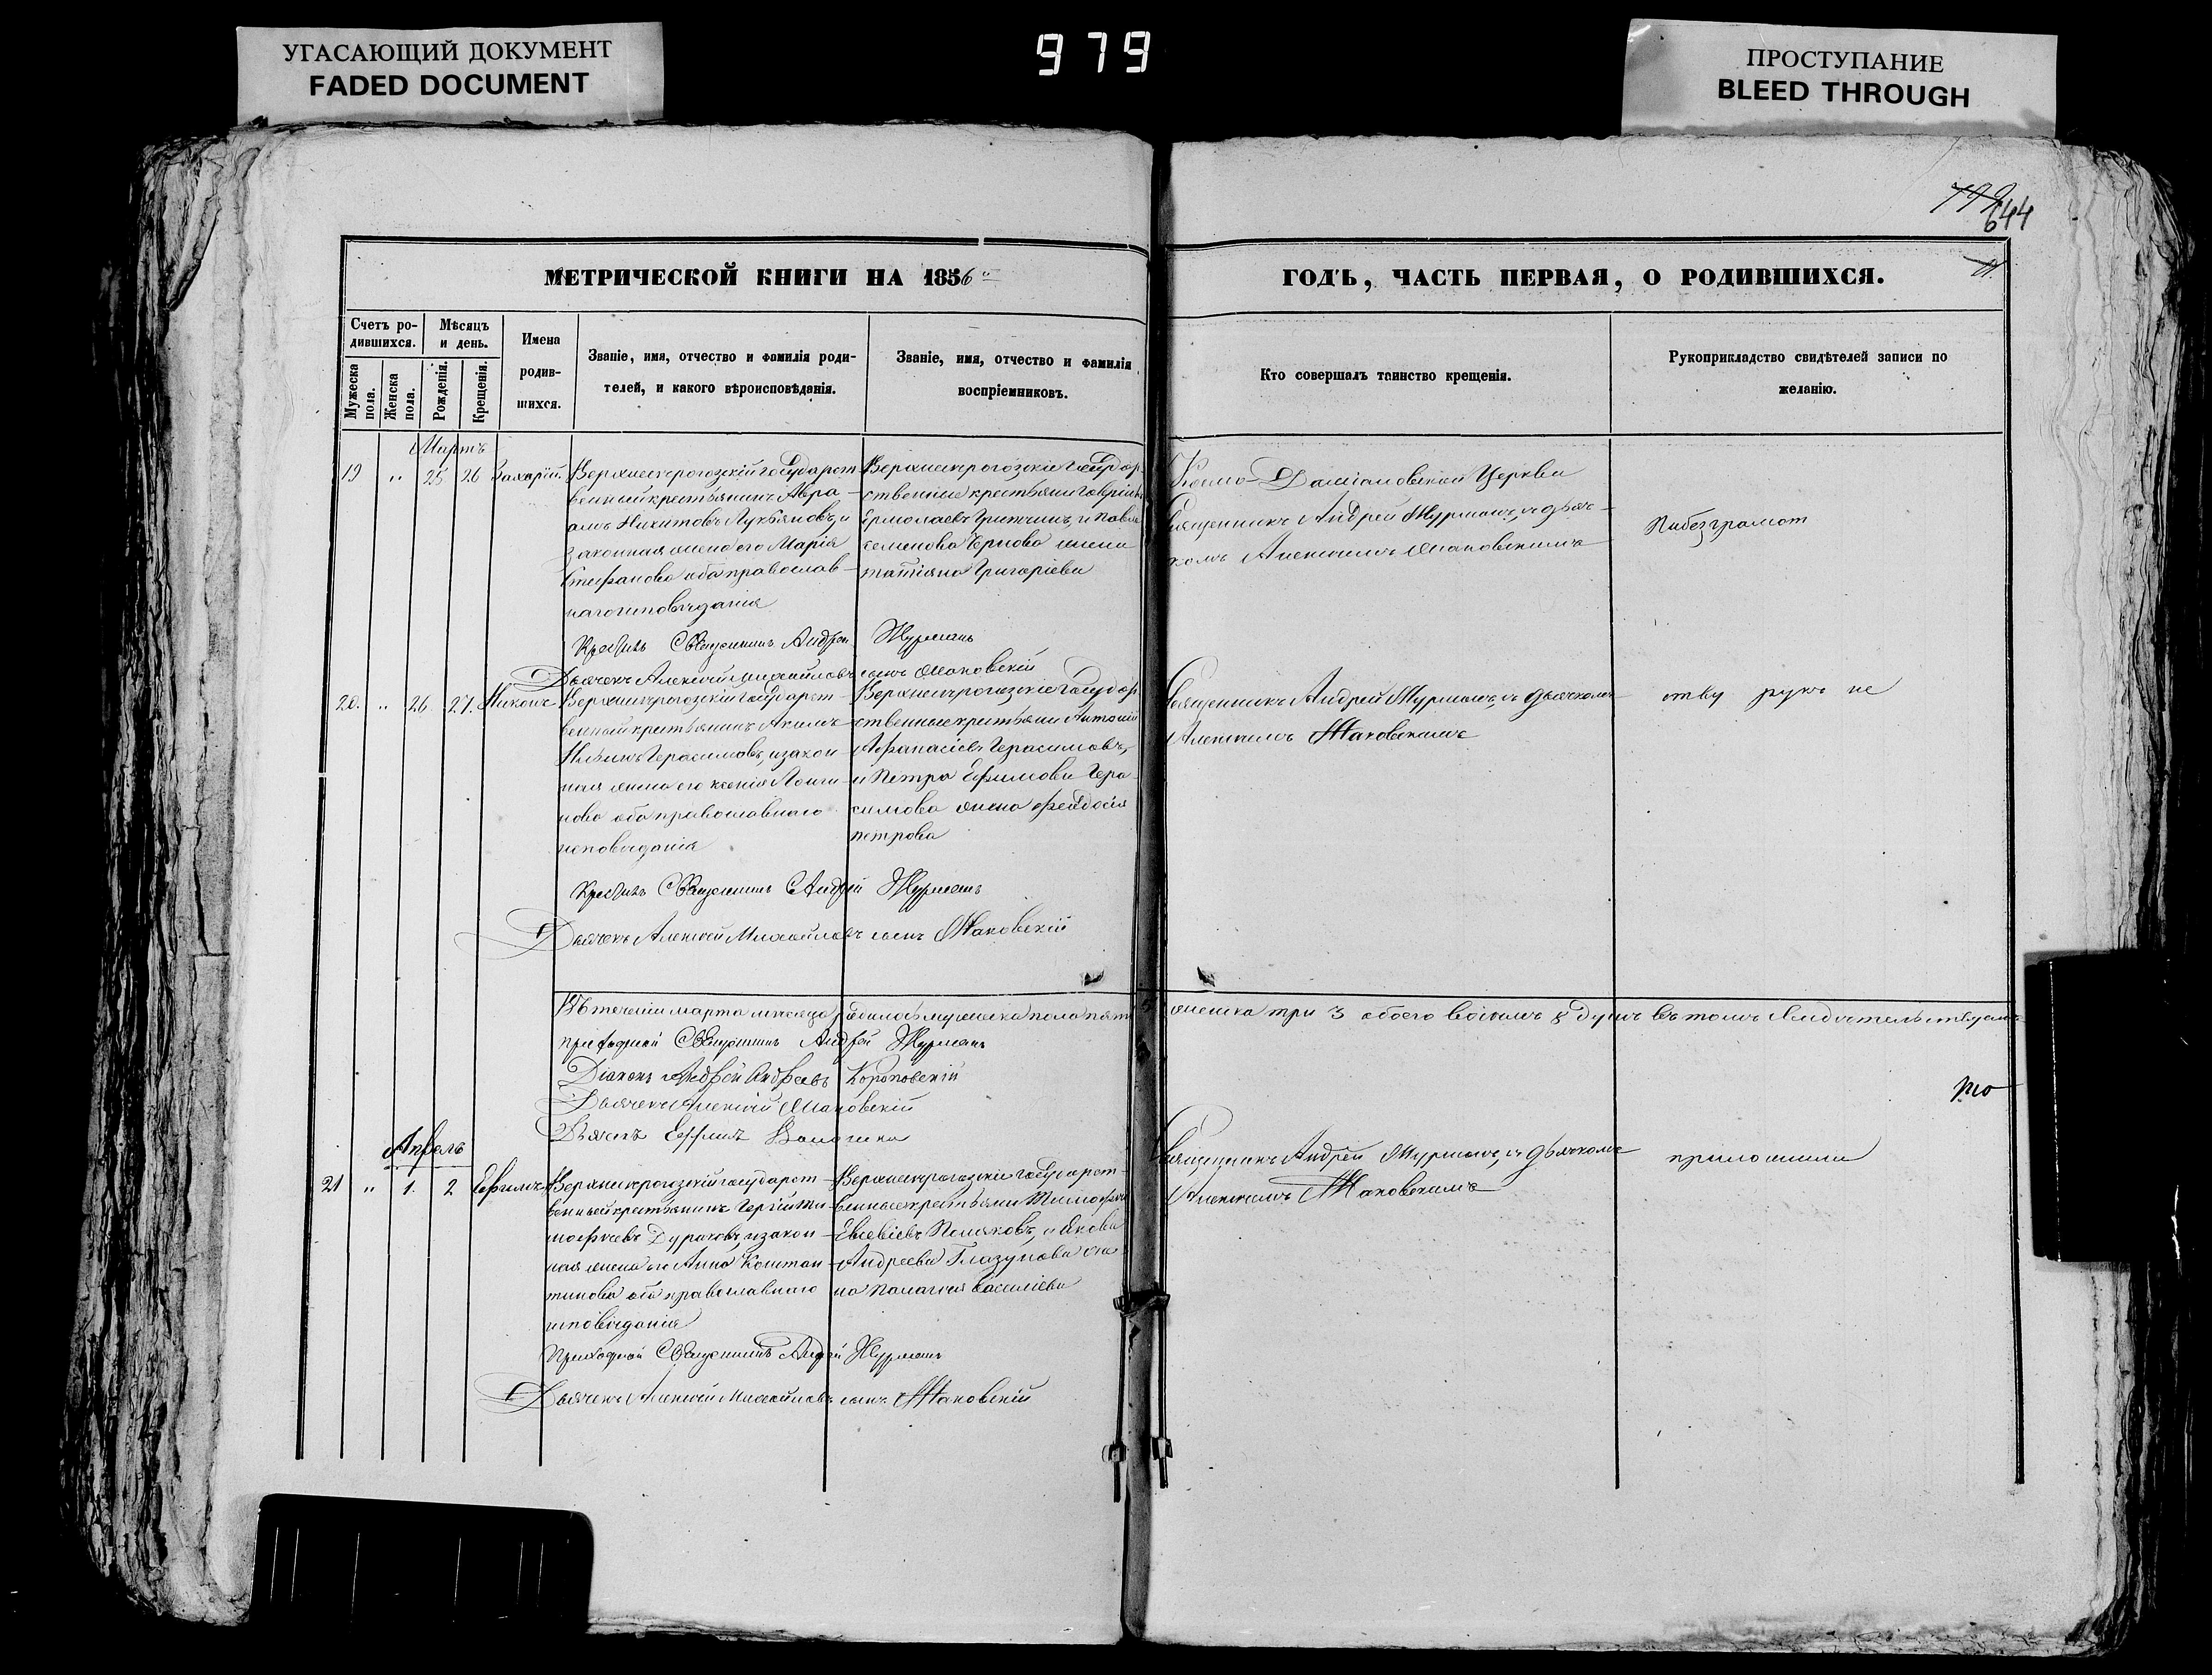 УГАСАЮЩИЙ ДОКУМЕНТ
FADED DOCUMENT
979
ПРОСТУПАНИЕ
BLEED THROUGH
644
МЕТРИЧЕСКОЙ КНИГИ НА 1856
ГОДЪ, ЧАСТЬ ПЕРВАЯ, О РОДИВШИХСЯ.
Счетъ ро-
дившихся.
Мужеска
пола.
Женска
пола.
Мѣсяцъ
и день.
Рожденія.
Крещенія.
Имена
родив-
шихся.
Званіе, имя, отчество и фамилія роди-
телей, и какого вѣроисповѣданія.
Званіе, имя, отчество и фамилія
воспріемниковъ.
Кто совершалъ таинство крещенія.
Рукоприкладство свидѣтелей записи по
желанію.
Мартъ
19 " 25 26 Захарій
Верхнесерогозскій государст-
венный крестьянинъ Авра-
амъ Никитовъ Лукьяновъ, и
законная жена его Марія
Стефанова оба православ-
наго исповѣданія
Верхнесерогозскіе государ
ственные крестьяни Гавріилъ
Ермолаевъ и Павла
семенова Чернова жена
татіяна Григоріева
Космо-Даміановской Церкви
Священникъ Андрей Журманъ, съ дьяч-
комъ Алексіемъ Маковскимъ
Крестилъ Священникъ Андрей Журманъ
Дьячекъ Алексій Михайловъ сынъ Маковскій
20. " 26. 27. Никонъ
Верхнесерогозскій государст-
венный крестьянинъ Акимъ
Герасимовъ, и закон-
ная жена его ксенія Логи-
нова оба православнаго
исповѣданія
Верхнесерогозскіе государ
ственные крестьяни Антоній
Афанасіевъ Герасимовъ,
и Петра Ефимова Гера-
симова жена Феодосія
петрова
Священникъ Андрей Журманъ, съ дьячкомъ
Алексіемъ Маковскимъ
ству рукъ не
Крестилъ Священникъ Андрей Журманъ
Дьячекъ Алексій Михайловъ сынъ Маковскій
Въ теченіи марта месяца родилось мужеска пола пять
женска три 3 обоего всѣхъ 8 душъ въ томъ свидѣтельствуемъ
приходской Священникъ Андрей Журманъ
Діаконъ Андрей Андреевъ Короповскій
Дьячекъ Алексій Маковскій
Апрель
21 " 1. 2 Ефимъ
Верхнесерогозскій государст-
венный крестьянинъ Сергій Ти-
мофеевъ Дураковъ, и закон-
ная жена его Анна Констан-
тинова оба православнаго
исповѣданія
Верхнесерогозскіе государст-
венные крестьяни Тимофей
Евсевіевъ Поляковъ, и Якова
Андреева Глазунова же-
на Палагея василіева
Священникъ Андрей Журманъ, съ дьячкомъ
Алексіемъ Маковскимъ
приложили
Приходской Священникъ Андрей Журманъ
Дьячекъ Алексій Михайловъ сынъ Маковскій